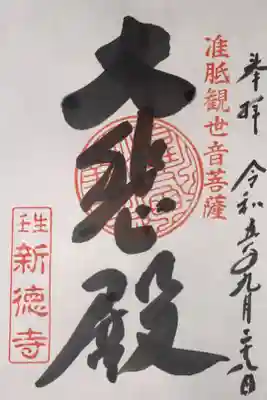 奉拝
令和五年九月二十八日
准胝観世音菩薩
大悲殿
壬生
新徳寺